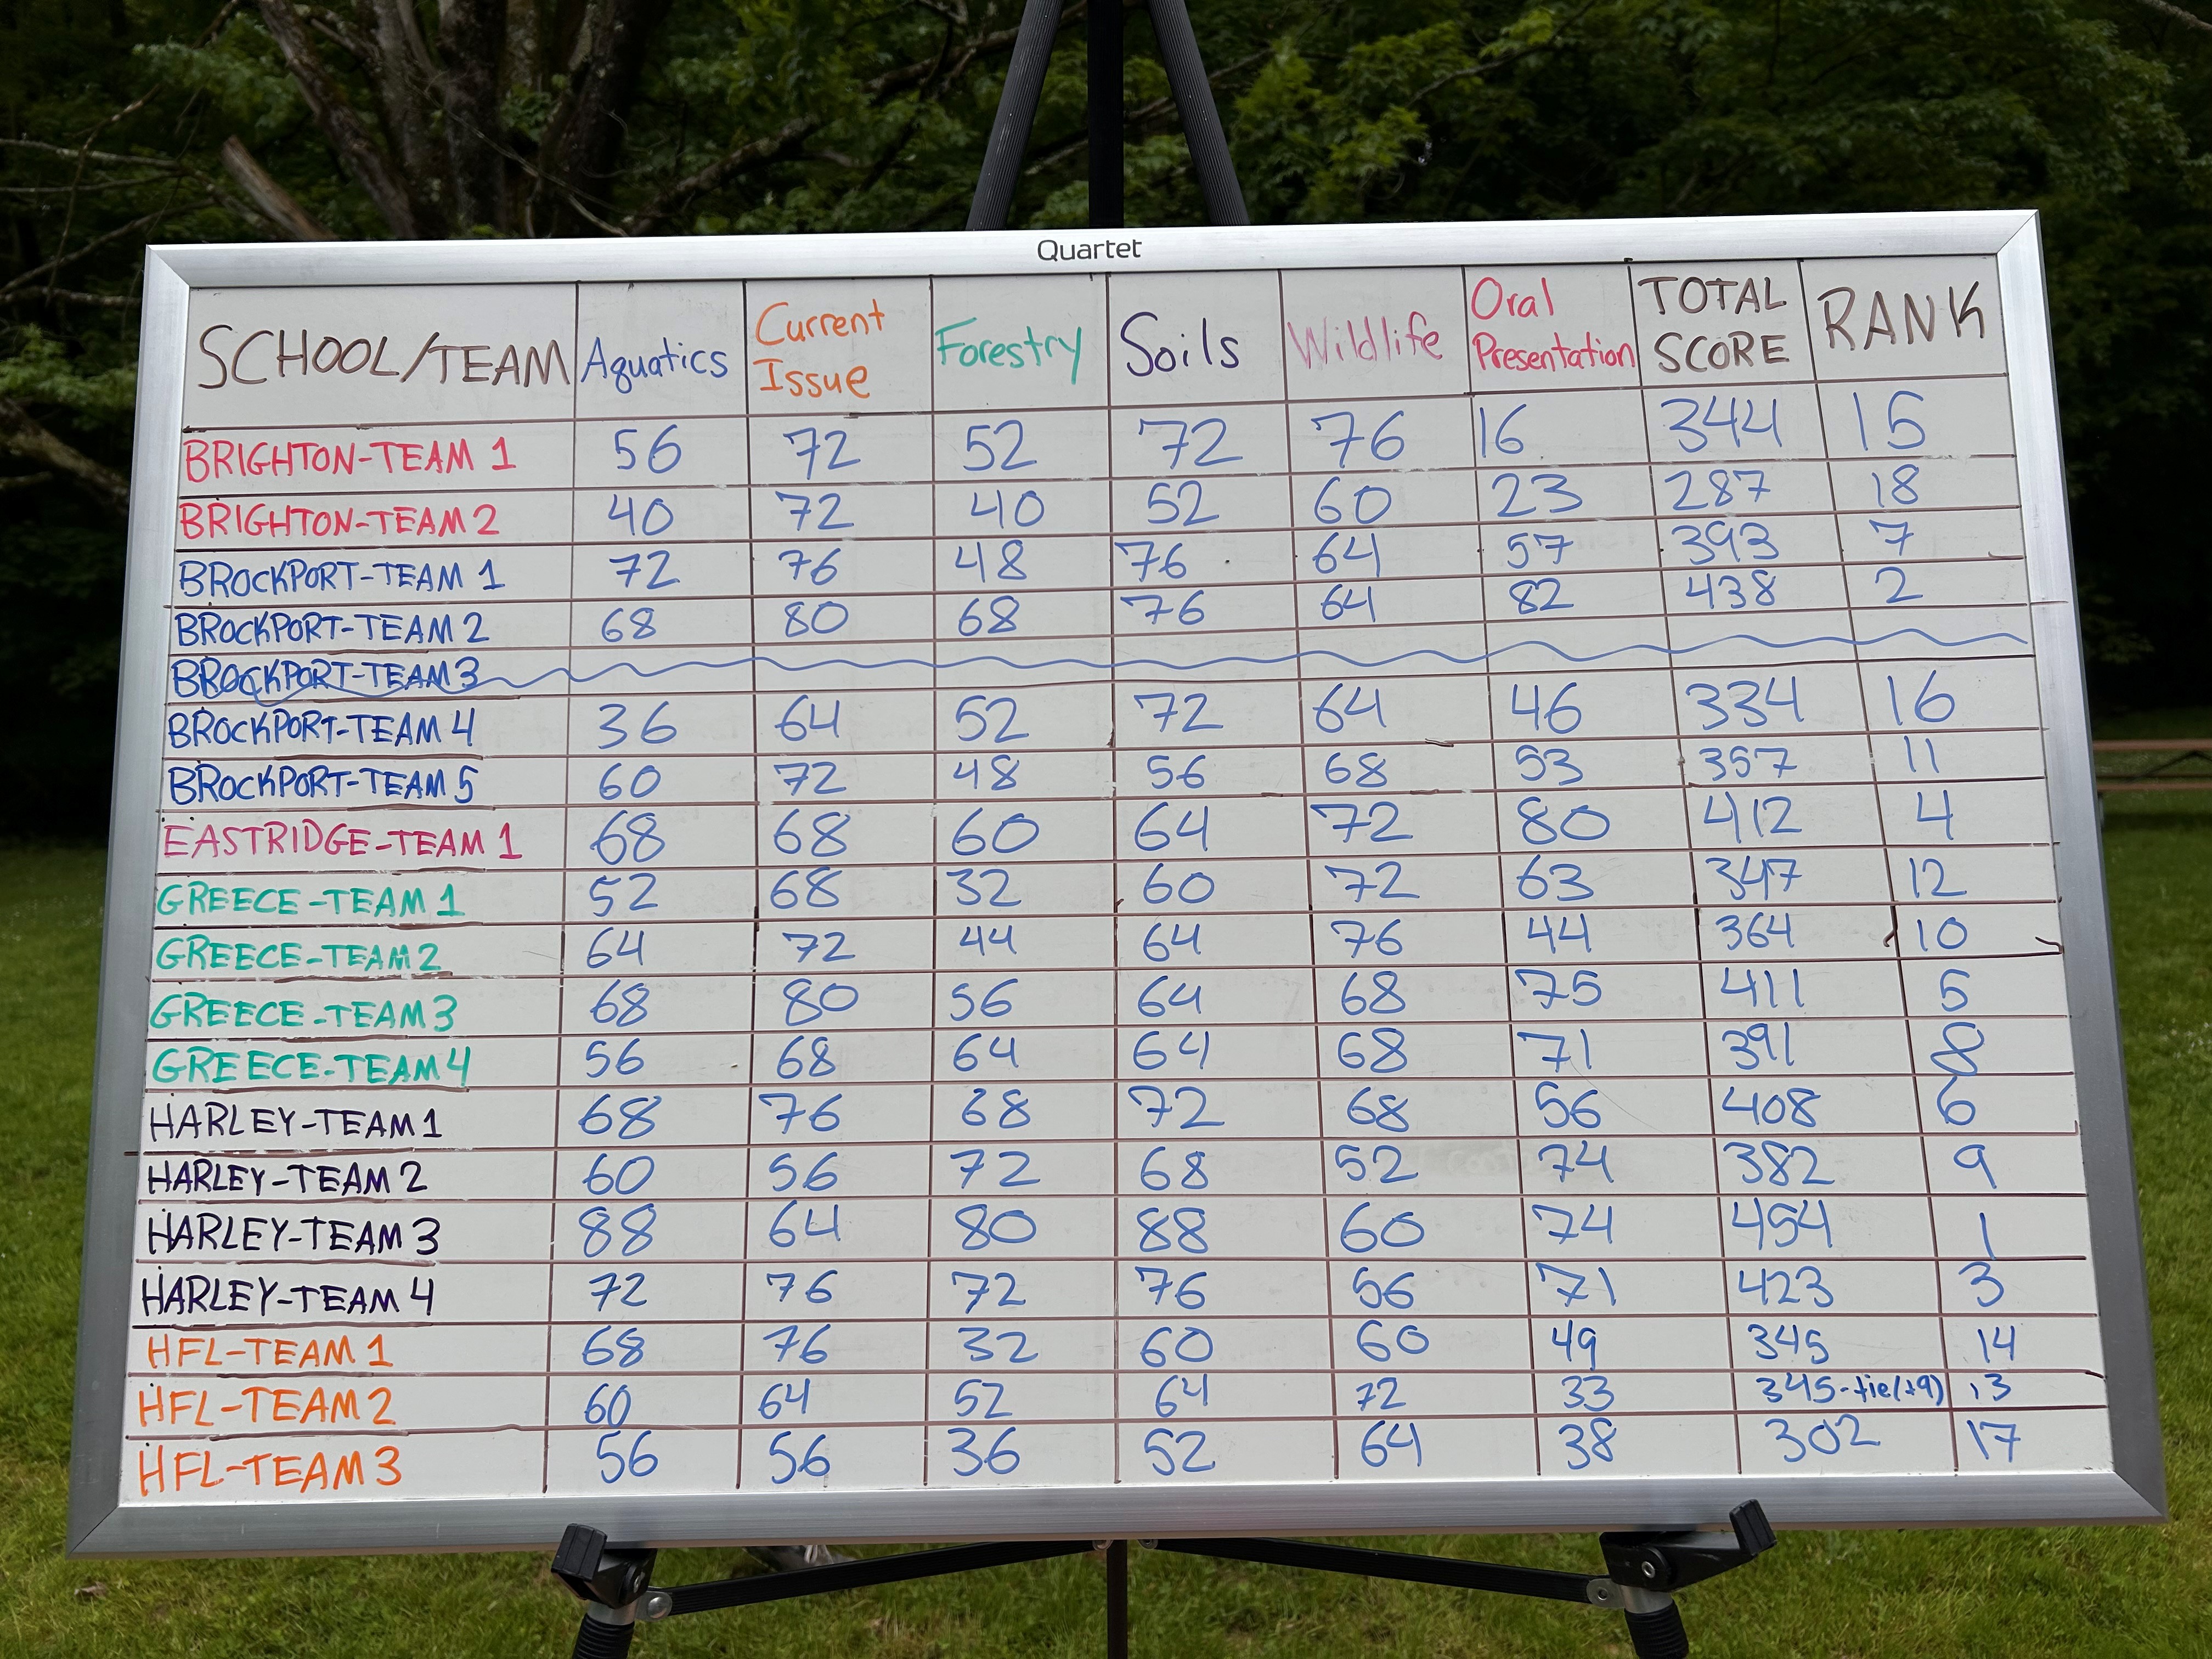 Quartet
SCHOOL/TEAM Aquatics Current Issue Forestry Soils Wildlife Oral Presentation TOTAL SCORE RANK
BRIGHTON-TEAM 1 56 72 52 72 76 16 344 15
BRIGHTON-TEAM 2 40 72 40 52 60 23 287 18
BROCKPORT-TEAM 1 72 76 48 76 64 57 393 7
BROCKPORT-TEAM 2 68 80 68 76 64 82 438 2
BROCKPORT-TEAM 3
BROCKPORT-TEAM 4 36 64 52 72 64 46 334 16
BROCKPORT-TEAM 5 60 72 48 56 68 53 357 11
EASTRIDGE-TEAM 1 68 68 60 64 72 80 412 4
GREECE-TEAM 1 52 68 32 60 72 63 347 12
GREECE-TEAM 2 64 72 44 64 76 44 364 10
GREECE-TEAM 3 68 80 56 64 68 75 411 5
GREECE-TEAM 4 56 68 64 64 68 71 391 8
HARLEY-TEAM 1 68 76 68 72 68 56 408 6
HARLEY-TEAM 2 60 56 72 68 52 74 382 9
HARLEY-TEAM 3 88 64 80 88 60 74 454 1
HARLEY-TEAM 4 72 76 72 76 56 71 423 3
HFL-TEAM 1 68 76 32 60 60 49 345 14
HFL-TEAM 2 60 64 52 64 72 33 345-tie(+9) 13
HFL-TEAM 3 56 56 36 52 64 38 302 17